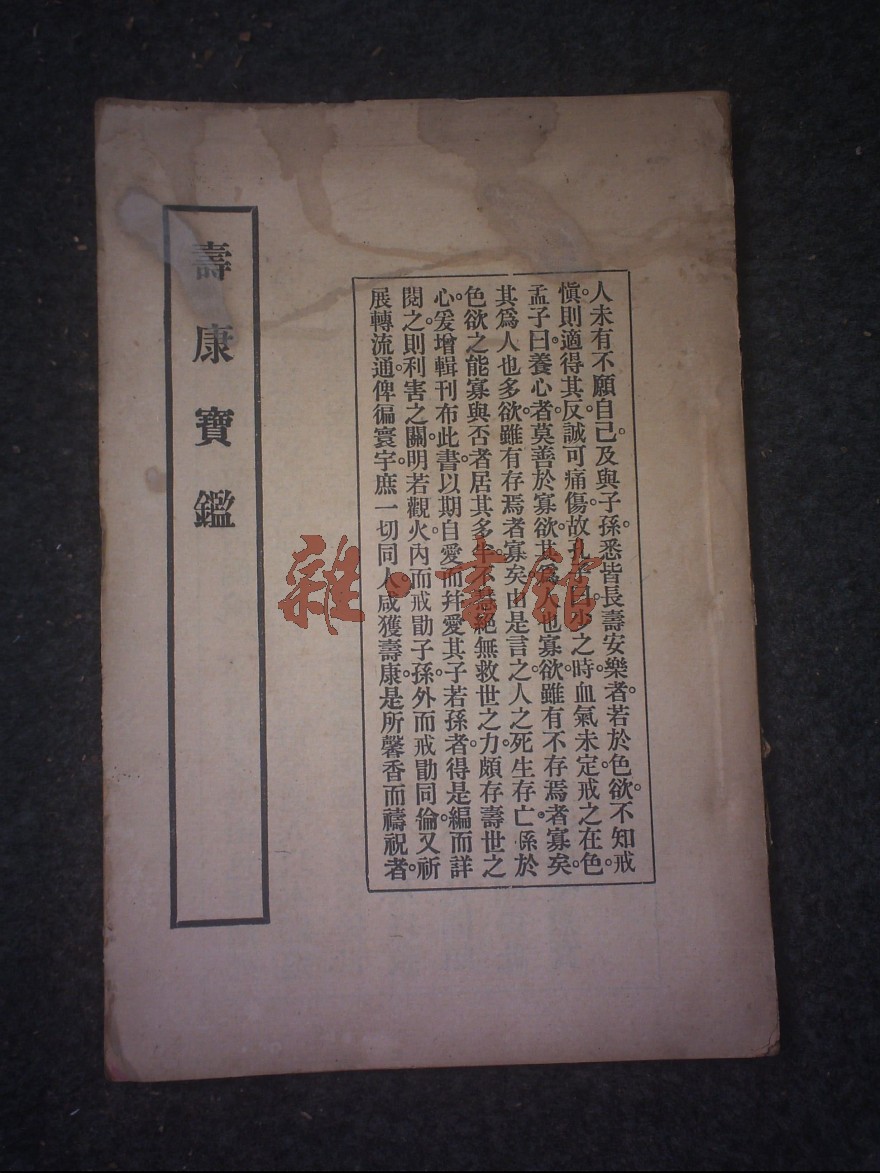 人未有不願自己。及與子孫。悉皆長壽安樂者。若於色欲。不知戒
愼。則適得其反。誠可痛傷。故孔子曰。少之時。血氣未定。戒之在色。
孟子曰。養心者。莫善於寡欲。其爲人也寡欲。雖有不存焉者寡矣。
其爲人也多欲。雖有存焉者寡矣。由是言之。人之死生存亡。係於
色欲之能寡與否者。居其多半。不慧絕無救世之力。頗存壽世之
心。爰增輯刊布此書。以期自愛而幷愛其子若孫者。得是編而詳
閱之。則利害之關。明若觀火。內而戒勖子孫。外而戒勖同倫。又祈
展轉流通。俾徧寰宇。庶一切同人。咸獲壽康。是所馨香而禱祝者。
壽康寶鑑
雜·書館